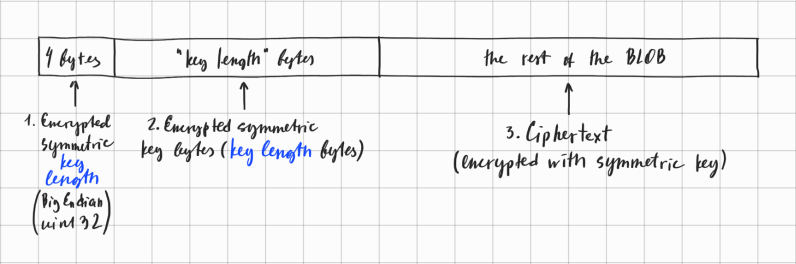 4 bytes
"key length" bytes
the rest of the BLOB
1. Encrypted
symmetric
key
length
(Big Endian
uint 32)
2. Encrypted symmetric
key bytes (key length bytes)
3. Ciphertext
(encrypted with symmetric key)